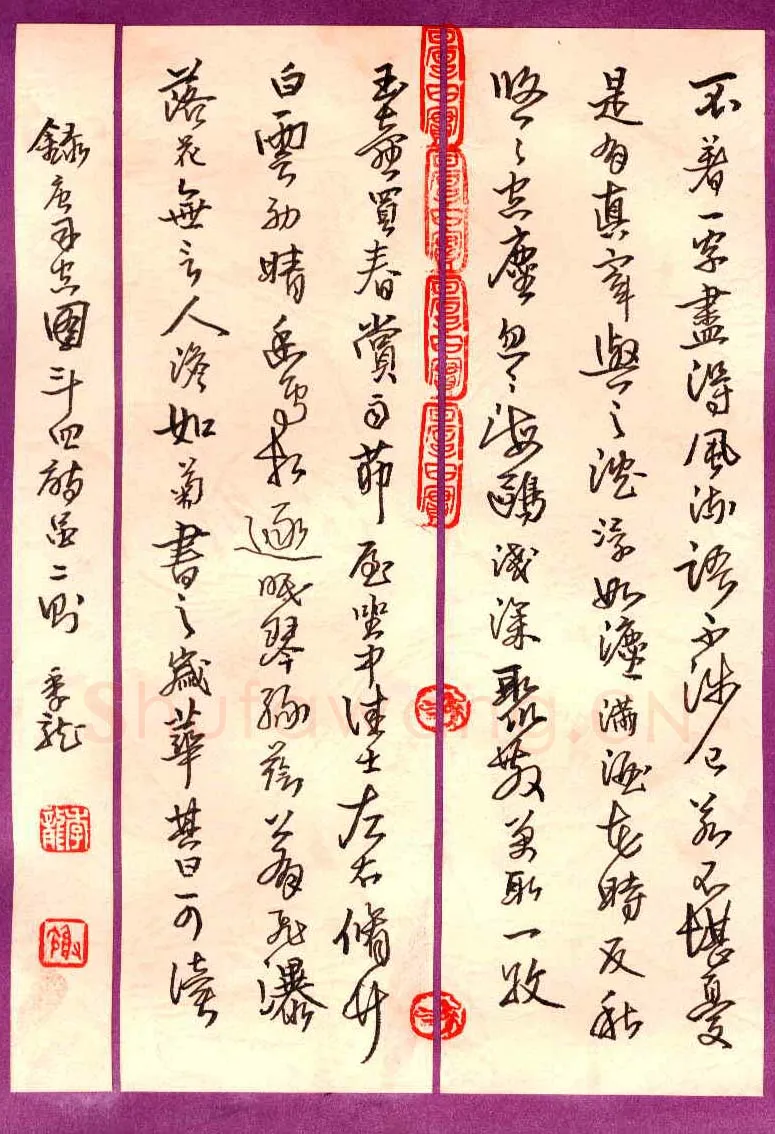 不着一字盡得風流語不涉己若不堪憂
是有真宰與之沈浮如漉滿酒花時反秋
悠〻空塵忽〻海鷗淺深聚散萬取一收
玉壺買春賞雨茆屋坐中佳士左右脩竹
白雲初晴幽鳥相逐眠琴綠蔭上有飛瀑
落花無言人澹如菊書之歲華其曰可讀
錄唐司空圖二十四詩品二則 季龍
季龍
Shufawang.CN